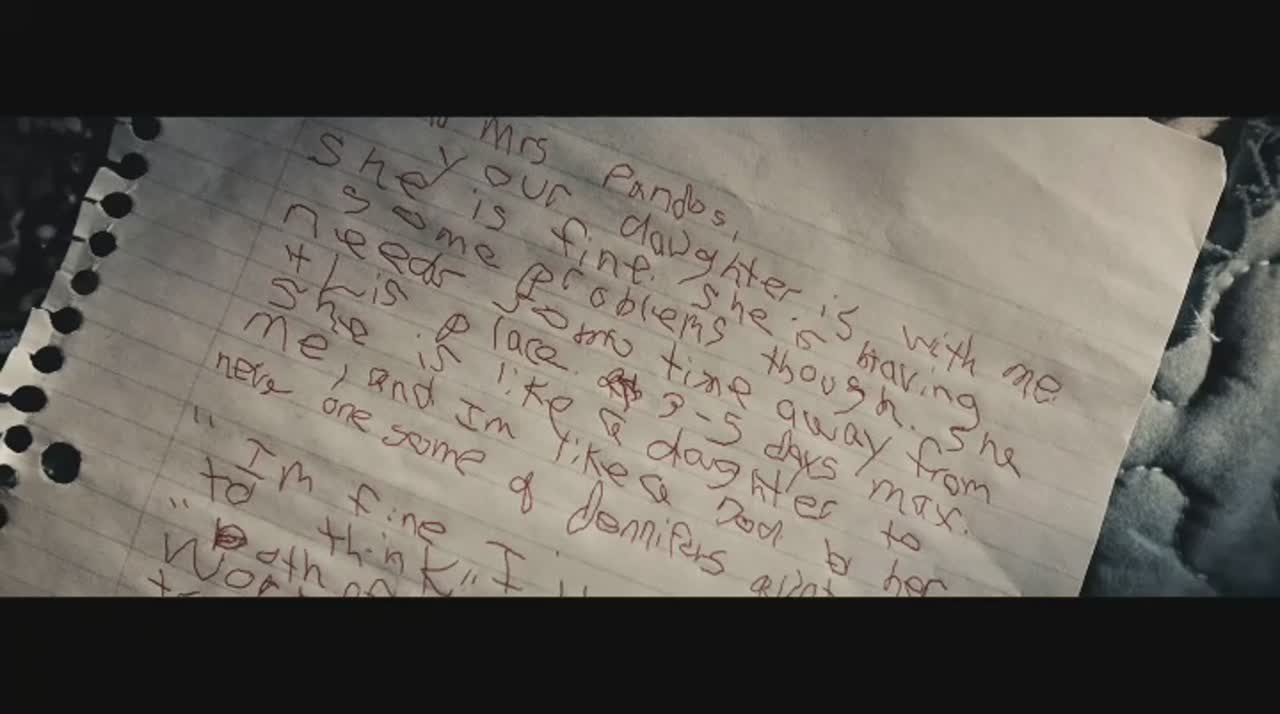 Mrs Pandos,
your daughter is with me.
She is fine. She is having
some problems though. She
needs some time away from
this place. 3-5 days max.
She is like a daughter to
me, and Im like a to her
one some of Jennifers
"Im fine I
to think"